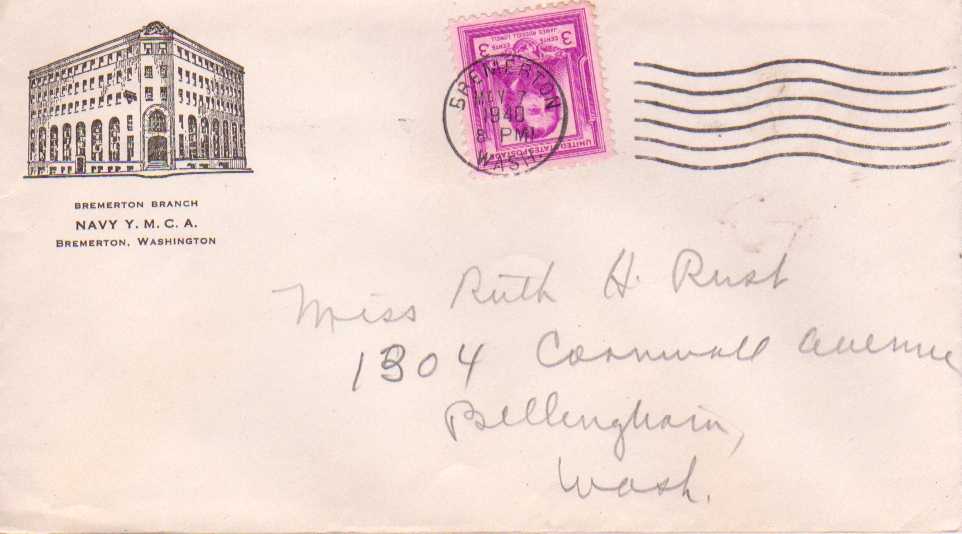 BREMERTON BRANCH
NAVY Y. M. C. A.
BREMERTON, WASHINGTON
3 CENTS CENTS 3
JAMES RUSSELL LOWELL
UNITED STATES POSTAGE
BREMERTON
MAY 7
1940
8 PM
WASH.
Miss Ruth H. Rust
1304 Cornwall Avenue
Bellingham,
Wash.